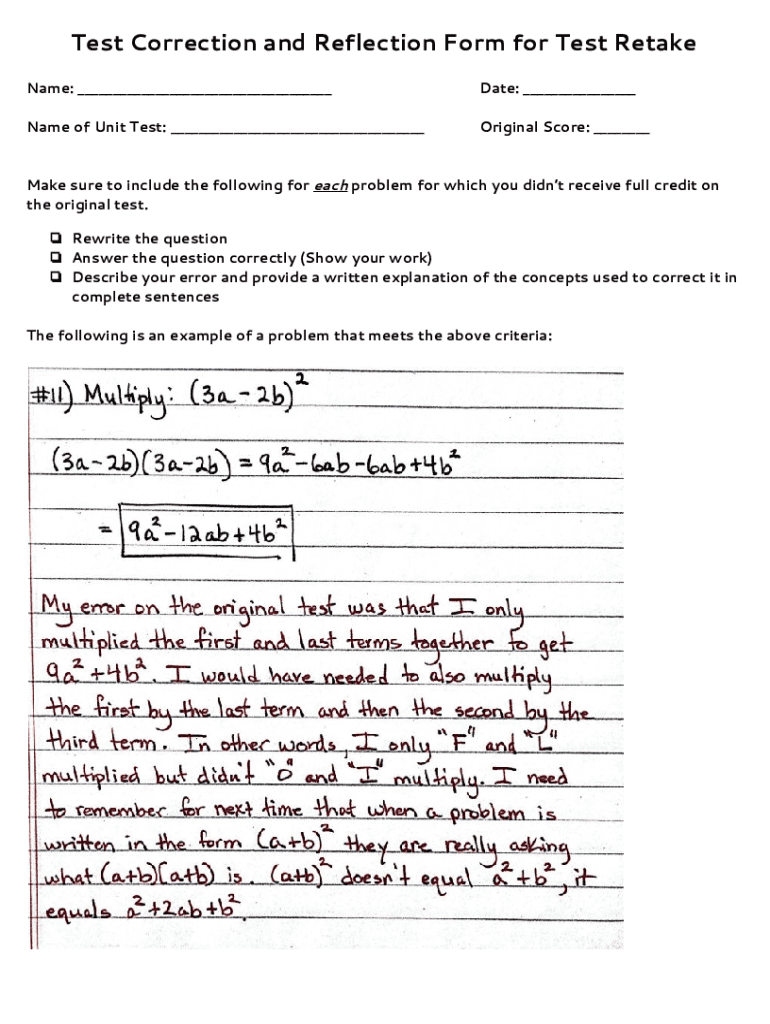 Test Correction and Reflection Form for Test Retake
Name: ___________________________________ Date: _______________
Name of Unit Test: ___________________________________ Original Score: ________
Make sure to include the following for each problem for which you didn't receive full credit on
the original test.
❏ Rewrite the question
❏ Answer the question correctly (Show your work)
❏ Describe your error and provide a written explanation of the concepts used to correct it in
complete sentences
The following is an example of a problem that meets the above criteria:
#11) Multiply: (3a-2b)²
(3a-2b)(3a-2b) = 9a²-6ab-6ab+4b²
= 9a²-12ab+4b²
My error on the original test was that I only
multiplied the first and last terms together to get
9a²+4b². I would have needed to also multiply
the first by the last term and then the second by the
third term. In other words, I only "F" and "L"
multiplied but didn't "O" and "I" multiply. I need
to remember for next time that when a problem is
written in the form (a+b)² they are really asking
what (a+b)(a+b) is. (a+b)² doesn't equal a²+b², it
equals a²+2ab+b².